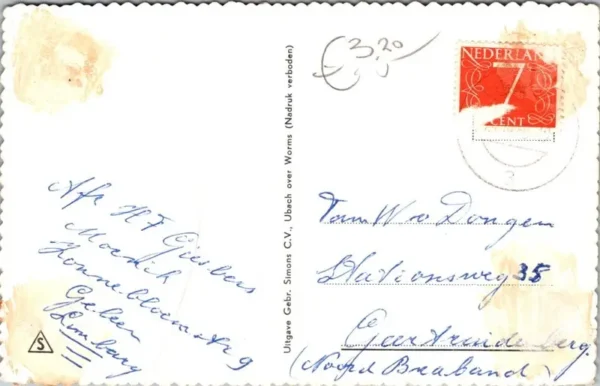 € 3,20
NEDERLAND
7
CENT
Afz H F Gijsbers
Zonnebloemstr 9
Geleen
Limburg
Uitgave Gebr. Simons C.V., Ubach over Worms (Nadruk verboden)
Fam W v Dongen
Stationsweg 38
Geertruidenberg.
(Noord Braband)
S